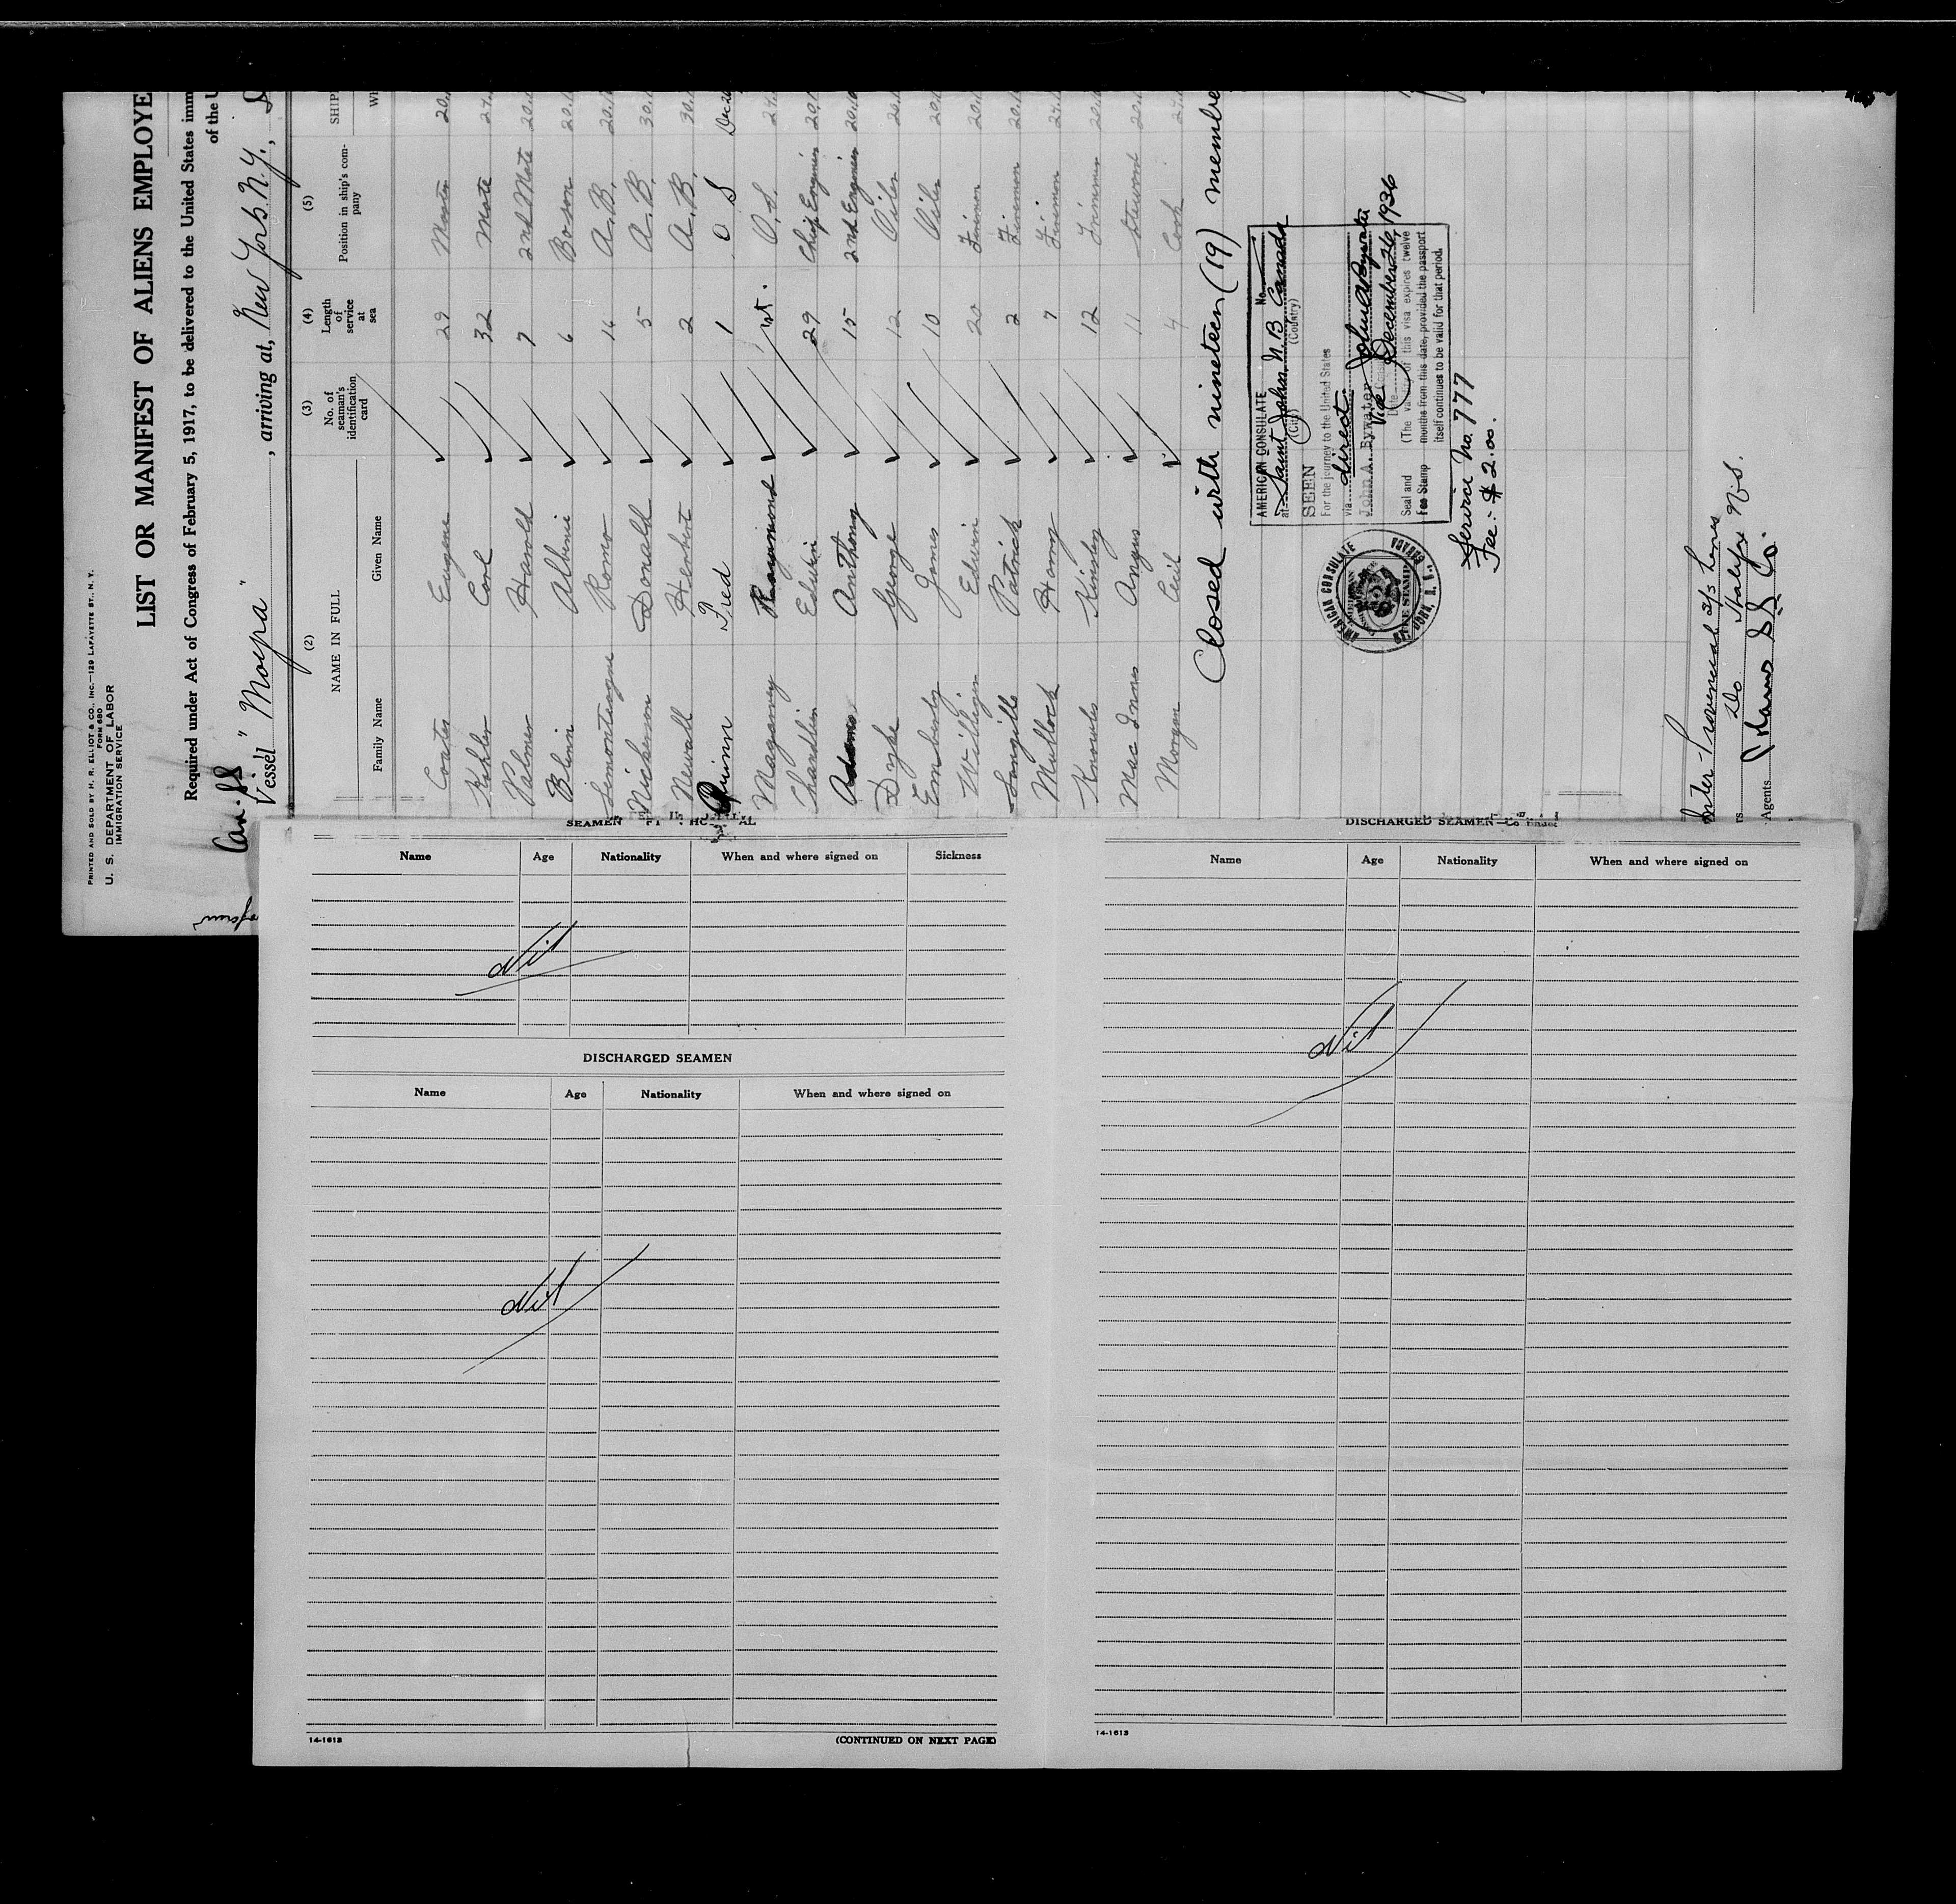 PRINTED AND SOLD BY H. R. ELLIOT & CO., INC.—129 LAFAYETTE ST., N. Y.
FORM 680
U. S. DEPARTMENT OF LABOR
IMMIGRATION SERVICE
LIST OR MANIFEST OF ALIENS EMPLOYE
Required under Act of Congress of February 5, 1917, to be delivered to the United States imm
of the U
Can. SS
Vessel "Moyra", arriving at, New York N.Y.,
(2) (3) (4) (5)
NAME IN FULL No. of seaman's identification card Length of service at sea Position in ship's company SHIP
Family Name Given Name Wh
Coates Eugene 29 Master 20.
Kohler Carl 32 Mate 27.
Palmer Harold 7 2nd Mate 20.
Blinn Albini 6 Boson 20.
Simontague Romo 16 A.B. 20.
Nickerson Donald 5 A.B. 30.
Newall Herbert 2 A.B. 30.
Quinn Fred 1 O S Dec 26
Magarvey Raymond 1st. O.S. 24.
Chardlin Edwin 29 Chief Engineer 20.
Adams Anthony 15 2nd Engineer 20.
Dryke George 12 Oiler 20.
Emberly James 10 Oiler 20.
Williger Edwin 20 Fireman 20.
Langille Patrick 2 Fireman 20.
Mullock Harry 7 Fireman 24.
Knowles Kinsley 12 Trimmer 20.
Mac Innes Angus 11 Steward 20.
Morgan Cecil 4 Cook 27.
Closed with nineteen (19) membe
AMERICAN CONSULATE No
at Saint John, N B Canada
(City) (Country)
SEEN
For the journey to the United States
via direct.
John A. Bywater
Vice
Date December 26, 1936
Seal and (The validity of this visa expires twelve
Fee Stamp months from this date, provided the passport
itself continues to be valid for that period.
AMERICAN CONSULATE
Service No. 777
Fee: $ 2.00.
Inter-Provincial S/S Lines
Do Halifax N.S.
Agents
SS Co.
SEAMEN
Name Age Nationality When and where signed on Sickness
Nil
DISCHARGED SEAMEN
Name Age Nationality When and where signed on
Nil
14-1613 (CONTINUED ON NEXT PAGE)
DISCHARGED SEAMEN—Continued
Name Age Nationality When and where signed on
Nil
14-1613